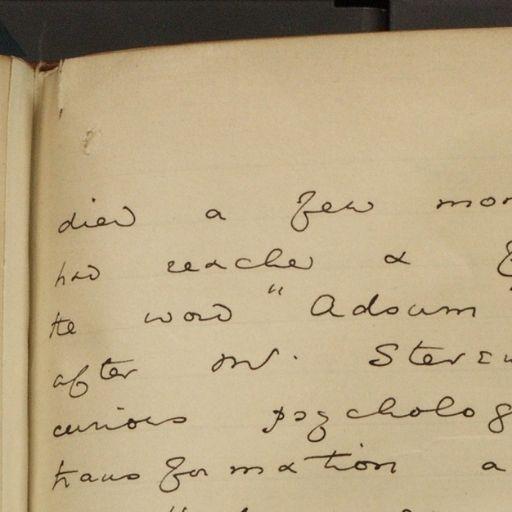 died a few mon
had reached a
the word "Adsum"
after Mr. Steven
curious psycholog
transformation a